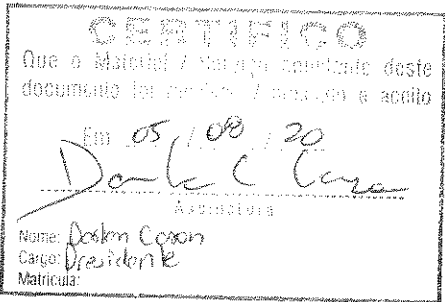 CERTIFICO
Que o Material / Serviço constante deste
documento foi recebido / prestado e aceito
Em 05 / 08 / 20
Assinatura
Nome:
Cargo: Presidente
Matrícula: